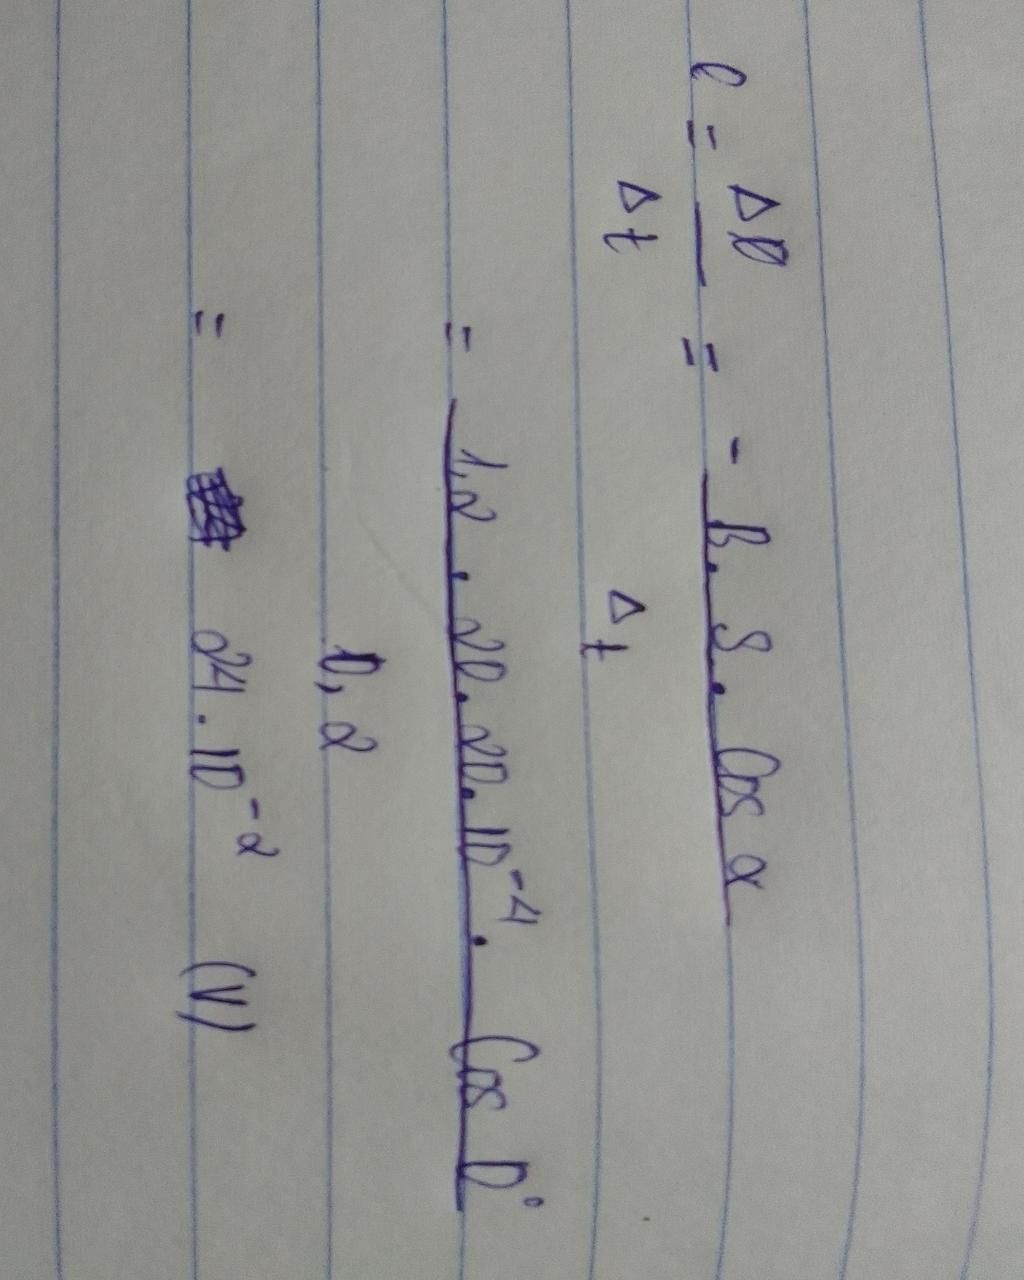 e = ΔΦ / Δt = - B.S.Cos α / Δt
= 1,2 . 20.20.10⁻⁴ . Cos 0° / 0,2
= 24.10⁻² (V)